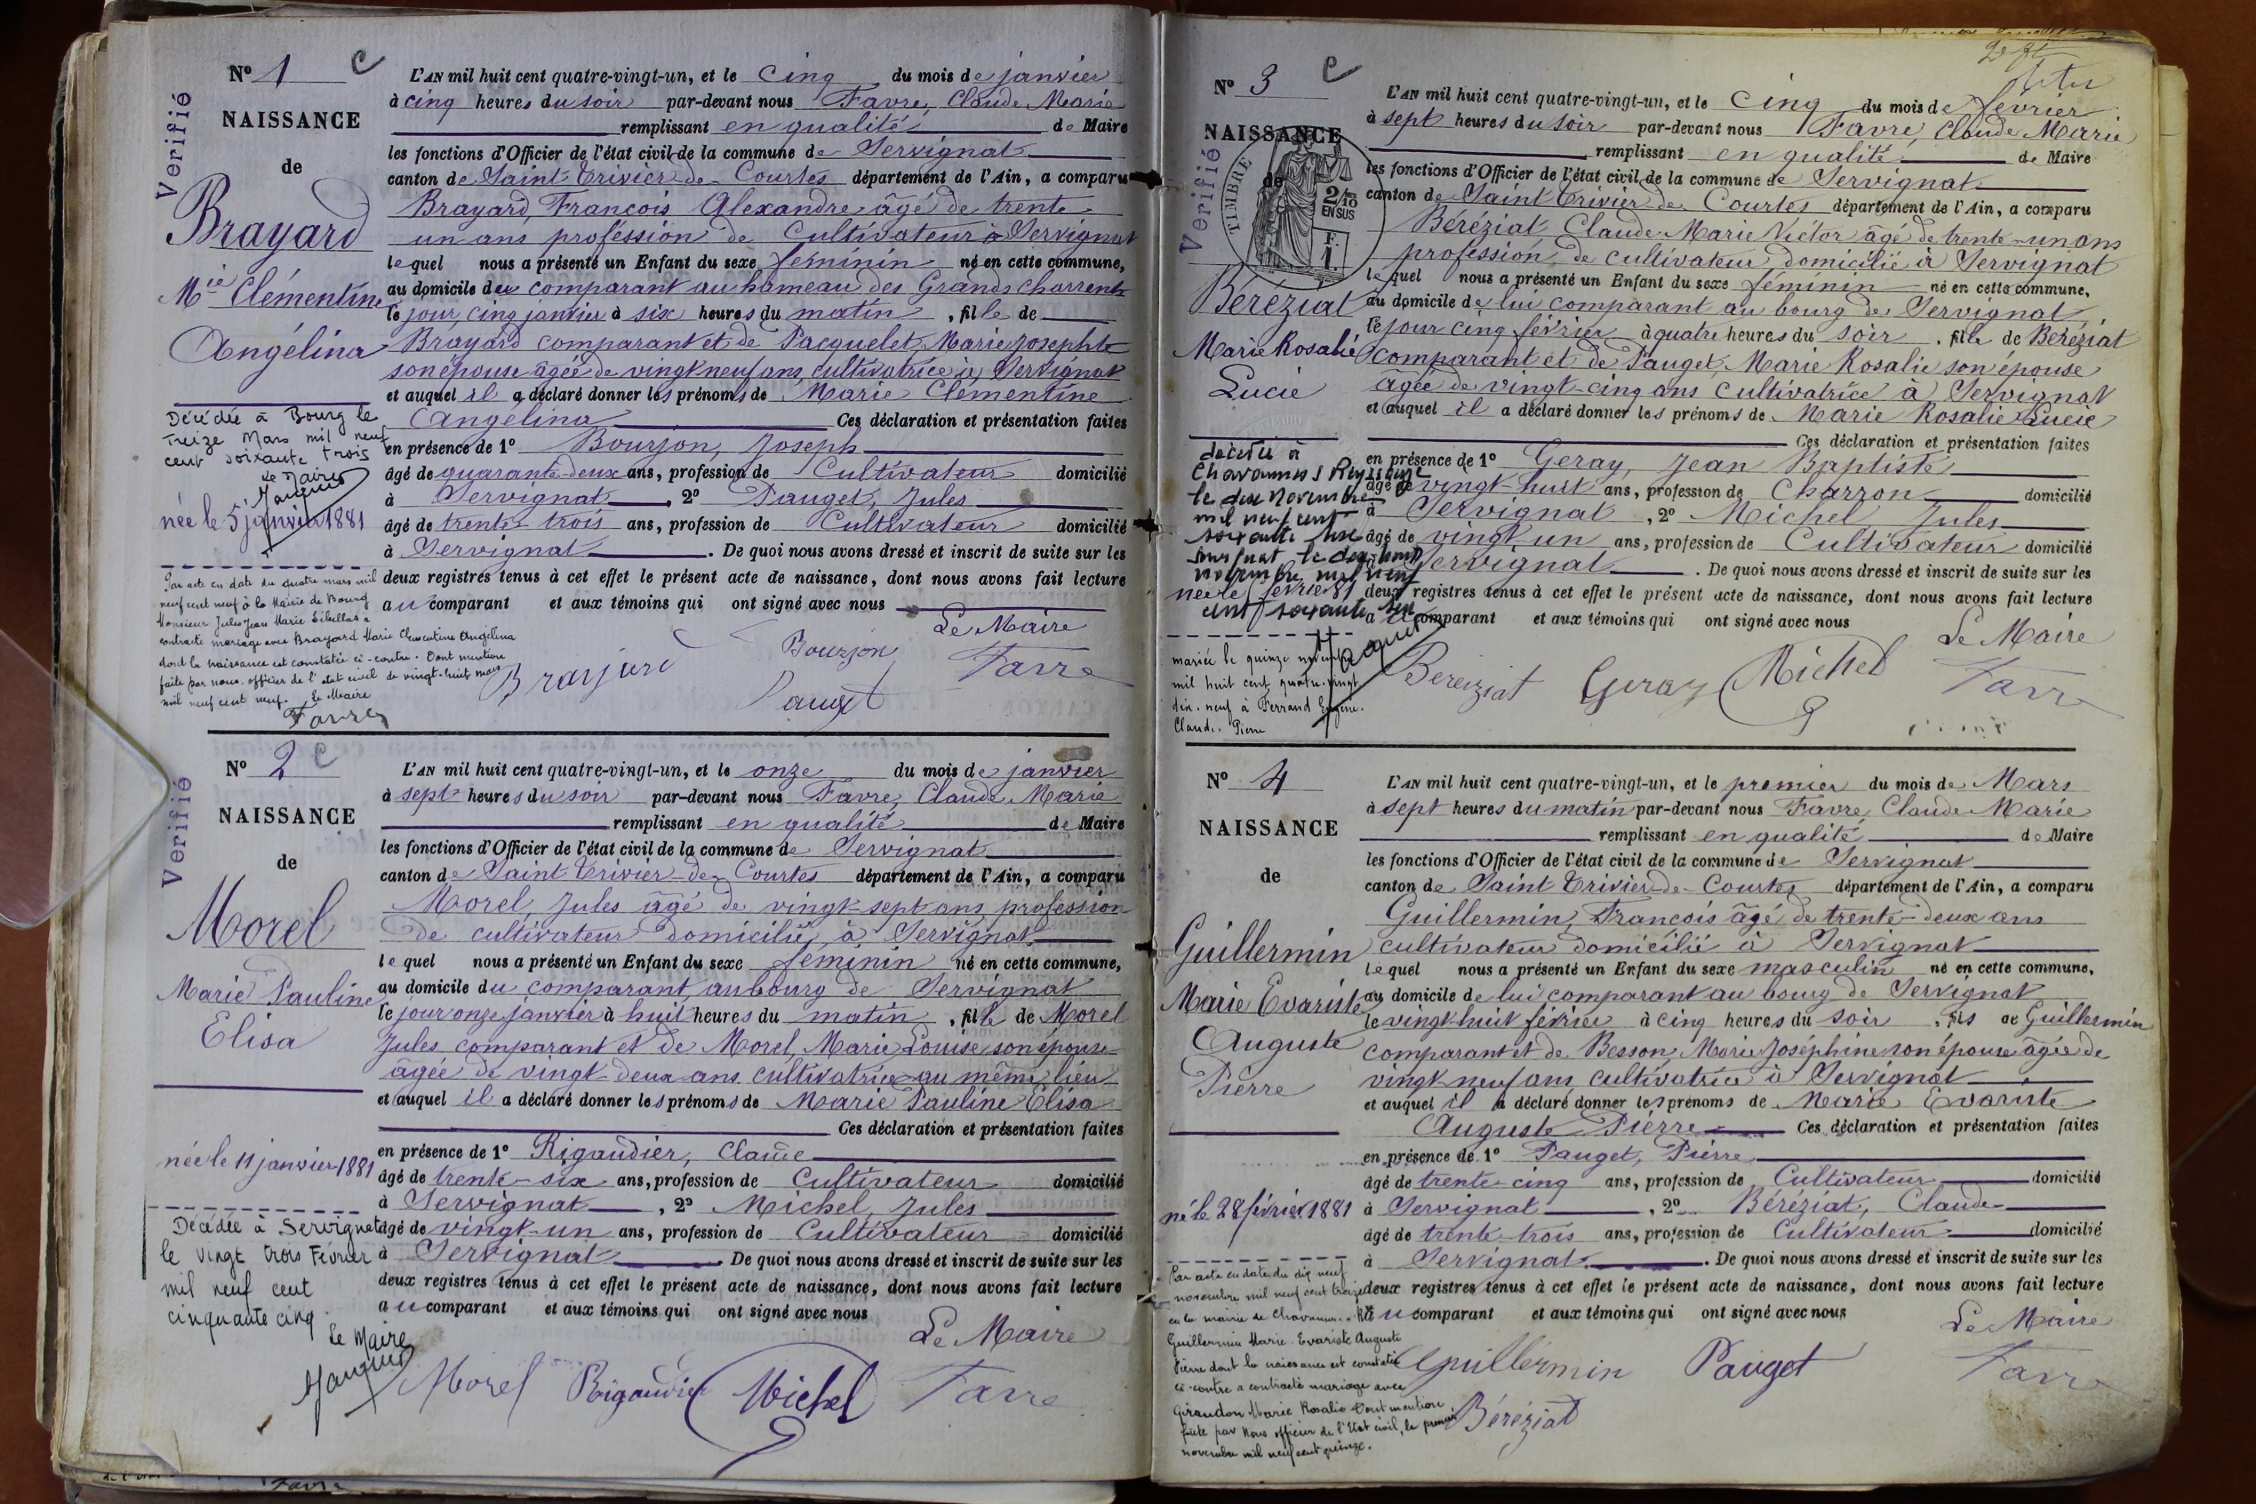 N° 1 C
Verifié
NAISSANCE
de
Brayard
Mie Clémentine
Angélina
Décédée à Bourg le
treize Mars mil neuf
cent soixante trois
Le Maire
née le 5 janvier 1881
Par acte en date du quatre mars mil
neuf cent neuf à la Mairie de Bourg
Monsieur Jules Jean Marie Sibellas a
contracté mariage avec Brayard Marie Clémentine Angélina
dont la naissance est constatée ci-contre. Dont mention
faite par nous officier de l'état civil le vingt-huit mars
mil neuf cent neuf. Le Maire
Favre
L'AN mil huit cent quatre-vingt-un, et le cinq du mois de janvier
à cinq heures du soir par-devant nous Favre, Claude Marie
remplissant en qualité de Maire
les fonctions d'Officier de l'état civil de la commune de Servignat
canton de Saint Trivier de Courtes département de l'Ain, a comparu
Brayard, François Alexandre âgé de trente
un ans profession de cultivateur à Servignat
lequel nous a présenté un Enfant du sexe féminin né en cette commune,
au domicile du comparant au hameau des Grands charrents
le jour cinq janvier à six heures du matin, fille de
Brayard comparant et de Pacquelet, Marie Josephte
son épouse âgée de vingt neuf ans, cultivatrice à Servignat
et auquel il a déclaré donner les prénoms de Marie Clémentine
Angélina Ces déclaration et présentation faites
en présence de 1° Bourjon, Joseph
âgé de quarante-deux ans, profession de Cultivateur domicilié
à Servignat, 2° Pauget, Jules
âgé de trente-trois ans, profession de Cultivateur domicilié
à Servignat. De quoi nous avons dressé et inscrit de suite sur les
deux registres tenus à cet effet le présent acte de naissance, dont nous avons fait lecture
au comparant et aux témoins qui ont signé avec nous
Le Maire
Brayard Bourjon Pauget Favre
N° 2 C
Verifié
NAISSANCE
de
Morel
Marie Pauline
Elisa
née le 11 janvier 1881
Décédée à Servignat
le vingt trois Février
mil neuf cent
cinquante cinq
Le Maire
L'AN mil huit cent quatre-vingt-un, et le onze du mois de janvier
à sept heures du soir par-devant nous Favre, Claude Marie
remplissant en qualité de Maire
les fonctions d'Officier de l'état civil de la commune de Servignat
canton de Saint Trivier de Courtes département de l'Ain, a comparu
Morel, Jules âgé de vingt-sept ans, profession
de cultivateur domicilié, à Servignat
lequel nous a présenté un Enfant du sexe féminin né en cette commune,
au domicile du comparant, au bourg de Servignat
le jour onze janvier à huit heures du matin, fille de Morel
Jules comparant et de Morel, Marie Louise son épouse
âgée de vingt-deux ans cultivatrice au même lieu
et auquel il a déclaré donner les prénoms de Marie Pauline Elisa
Ces déclaration et présentation faites
en présence de 1° Rigaudier, Claude
âgé de trente-six ans, profession de Cultivateur domicilié
à Servignat, 2° Michel, Jules
âgé de vingt-un ans, profession de Cultivateur domicilié
à Servignat. De quoi nous avons dressé et inscrit de suite sur les
deux registres tenus à cet effet le présent acte de naissance, dont nous avons fait lecture
au comparant et aux témoins qui ont signé avec nous
Le Maire
Morel Rigaudier Michel Favre
N° 3 C
NAISSANCE
de
Verifié
TIMBRE
2/10 EN SUS
F. 1.
Béréziat
Marie Rosalie
Lucie
décédée à
Chavannes s/ Reyssouze
le dix novembre
mil neuf cent
soixante six
Servignat le dix huit
novembre mil neuf
cent soixante six
née le 5 février 81
mariée le quinze novembre
mil huit cent quatre-vingt
dix-neuf à Ferrand Eugène
Claude Pierre
L'AN mil huit cent quatre-vingt-un, et le cinq du mois de février
à sept heures du soir par-devant nous Favre, Claude Marie
remplissant en qualité de Maire
les fonctions d'Officier de l'état civil de la commune de Servignat
canton de Saint Trivier de Courtes département de l'Ain, a comparu
Béréziat, Claude-Marie Victor âgé de trente-un ans
profession, de cultivateur domicilié à Servignat
lequel nous a présenté un Enfant du sexe féminin né en cette commune,
au domicile de lui comparant au bourg de Servignat
le jour cinq février à quatre heures du soir, fille de Béréziat
comparant et de Pauget, Marie Rosalie son épouse
âgée de vingt-cinq ans cultivatrice à Servignat
et auquel il a déclaré donner les prénoms de Marie Rosalie Lucie
Ces déclaration et présentation faites
en présence de 1° Geray, Jean Baptiste
âgé de vingt-huit ans, profession de Charron domicilié
à Servignat, 2° Michel Jules
âgé de vingt un ans, profession de Cultivateur domicilié
à Servignat. De quoi nous avons dressé et inscrit de suite sur les
deux registres tenus à cet effet le présent acte de naissance, dont nous avons fait lecture
au comparant et aux témoins qui ont signé avec nous
Le Maire
Bereziat Geray Michel Favre
N° 4
NAISSANCE
de
Guillermin
Marie Evariste
Auguste
Pierre
né le 28 février 1881
Par acte en date du dix neuf
novembre mil neuf cent treize
en la mairie de Chavannes s. R.
Guillermin Marie Evariste Auguste
Pierre dont la naissance est constatée
ci-contre a contracté mariage avec
Giraudon Marie Rosalie Dont mention
faite par Nous officier de l'Etat civil, le premier
novembre mil neuf cent quinze.
L'AN mil huit cent quatre-vingt-un, et le premier du mois de Mars
à sept heures du matin par-devant nous Favre, Claude-Marie
remplissant en qualité de Maire
les fonctions d'Officier de l'état civil de la commune de Servignat
canton de Saint Trivier de Courtes département de l'Ain, a comparu
Guillermin, François âgé de trente-deux ans
cultivateur domicilié à Servignat
lequel nous a présenté un Enfant du sexe masculin né en cette commune,
au domicile de lui comparant au bourg de Servignat
le vingt-huit février à cinq heures du soir, fils de Guillermin
comparant et de Besson, Marie Joséphine son épouse âgée de
vingt-neuf ans, cultivatrice à Servignat
et auquel il a déclaré donner les prénoms de Marie Evariste
Auguste Pierre Ces déclaration et présentation faites
en présence de 1° Pauget, Pierre
âgé de trente-cinq ans, profession de Cultivateur domicilié
à Servignat, 2° Béréziat, Claude
âgé de trente-trois ans, profession de Cultivateur domicilié
à Servignat. De quoi nous avons dressé et inscrit de suite sur les
deux registres tenus à cet effet le présent acte de naissance, dont nous avons fait lecture
au comparant et aux témoins qui ont signé avec nous
Le Maire
Guillermin Pauget Favre
Béréziat